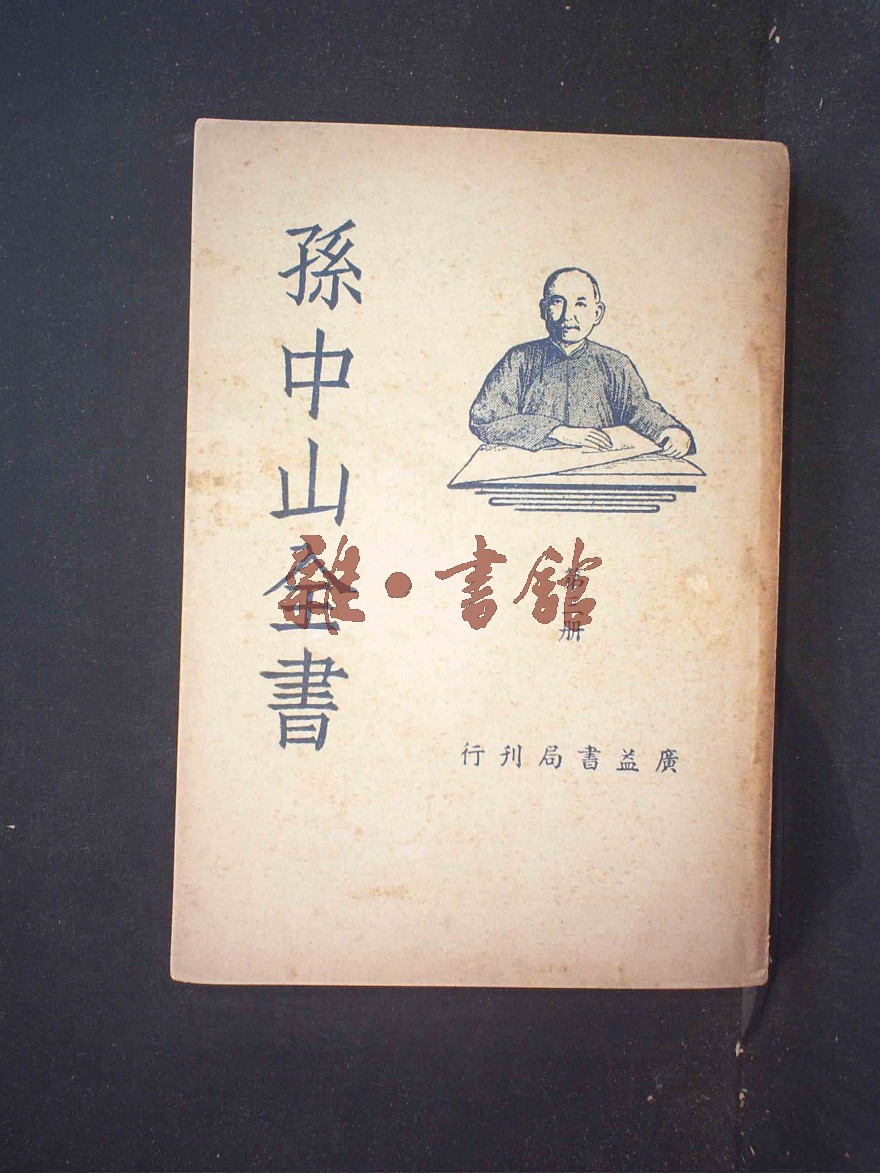 孫中山全書
雜·書館
廣益書局刊行